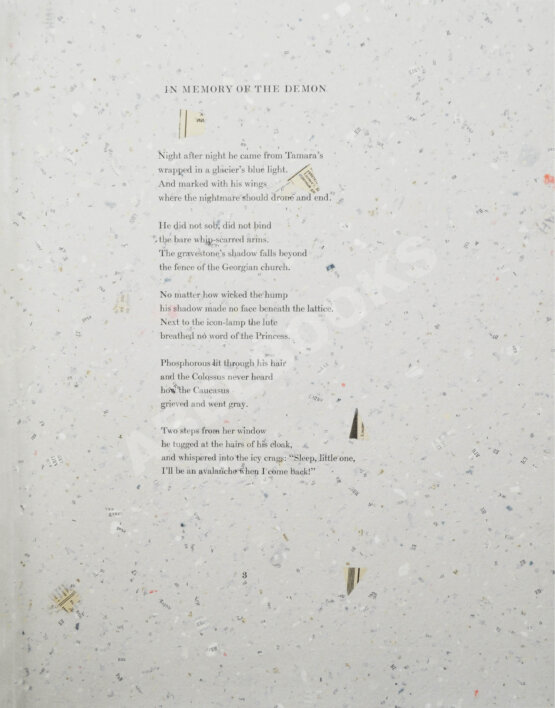 IN MEMORY OF THE DEMON
Night after night he came from Tamara's
wrapped in a glacier's blue light.
And marked with his wings
where the nightmare should drone and end.
He did not sob, did not bind
the bare whip-scarred arms.
The gravestone's shadow falls beyond
the fence of the Georgian church.
No matter how wicked the hump
his shadow made no face beneath the lattice.
Next to the icon-lamp the lute
breathed no word of the Princess.
Phosphorous lit through his hair
and the Colossus never heard
how the Caucasus
grieved and went gray.
Two steps from her window
he tugged at the hairs of his cloak,
and whispered into the icy crags: “Sleep, little one,
I'll be an avalanche when I come back!”
3